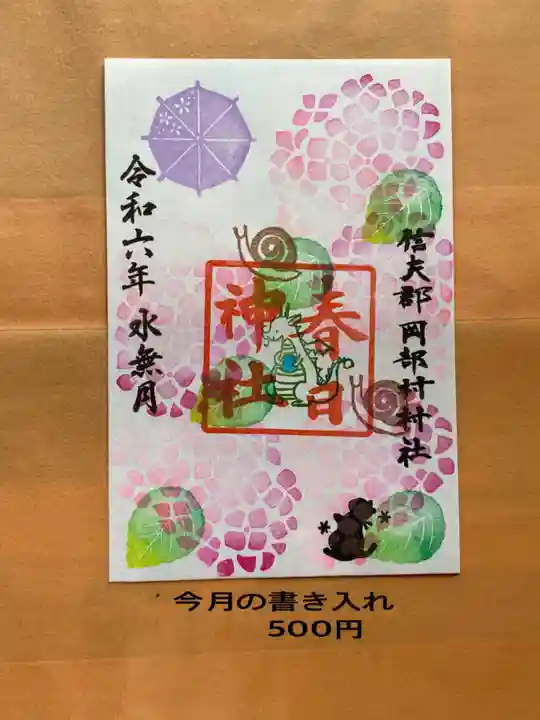 信夫郡岡部村村社
春日
神社
令和六年 水無月
今月の書き入れ
500円